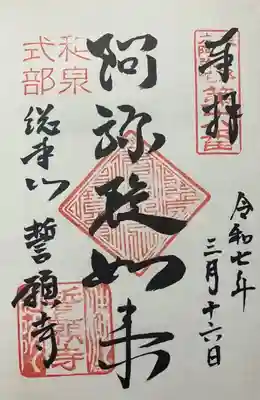 奉拝
令和七年
三月十六日
阿弥陀如来
和泉
式部
総本山 誓願寺